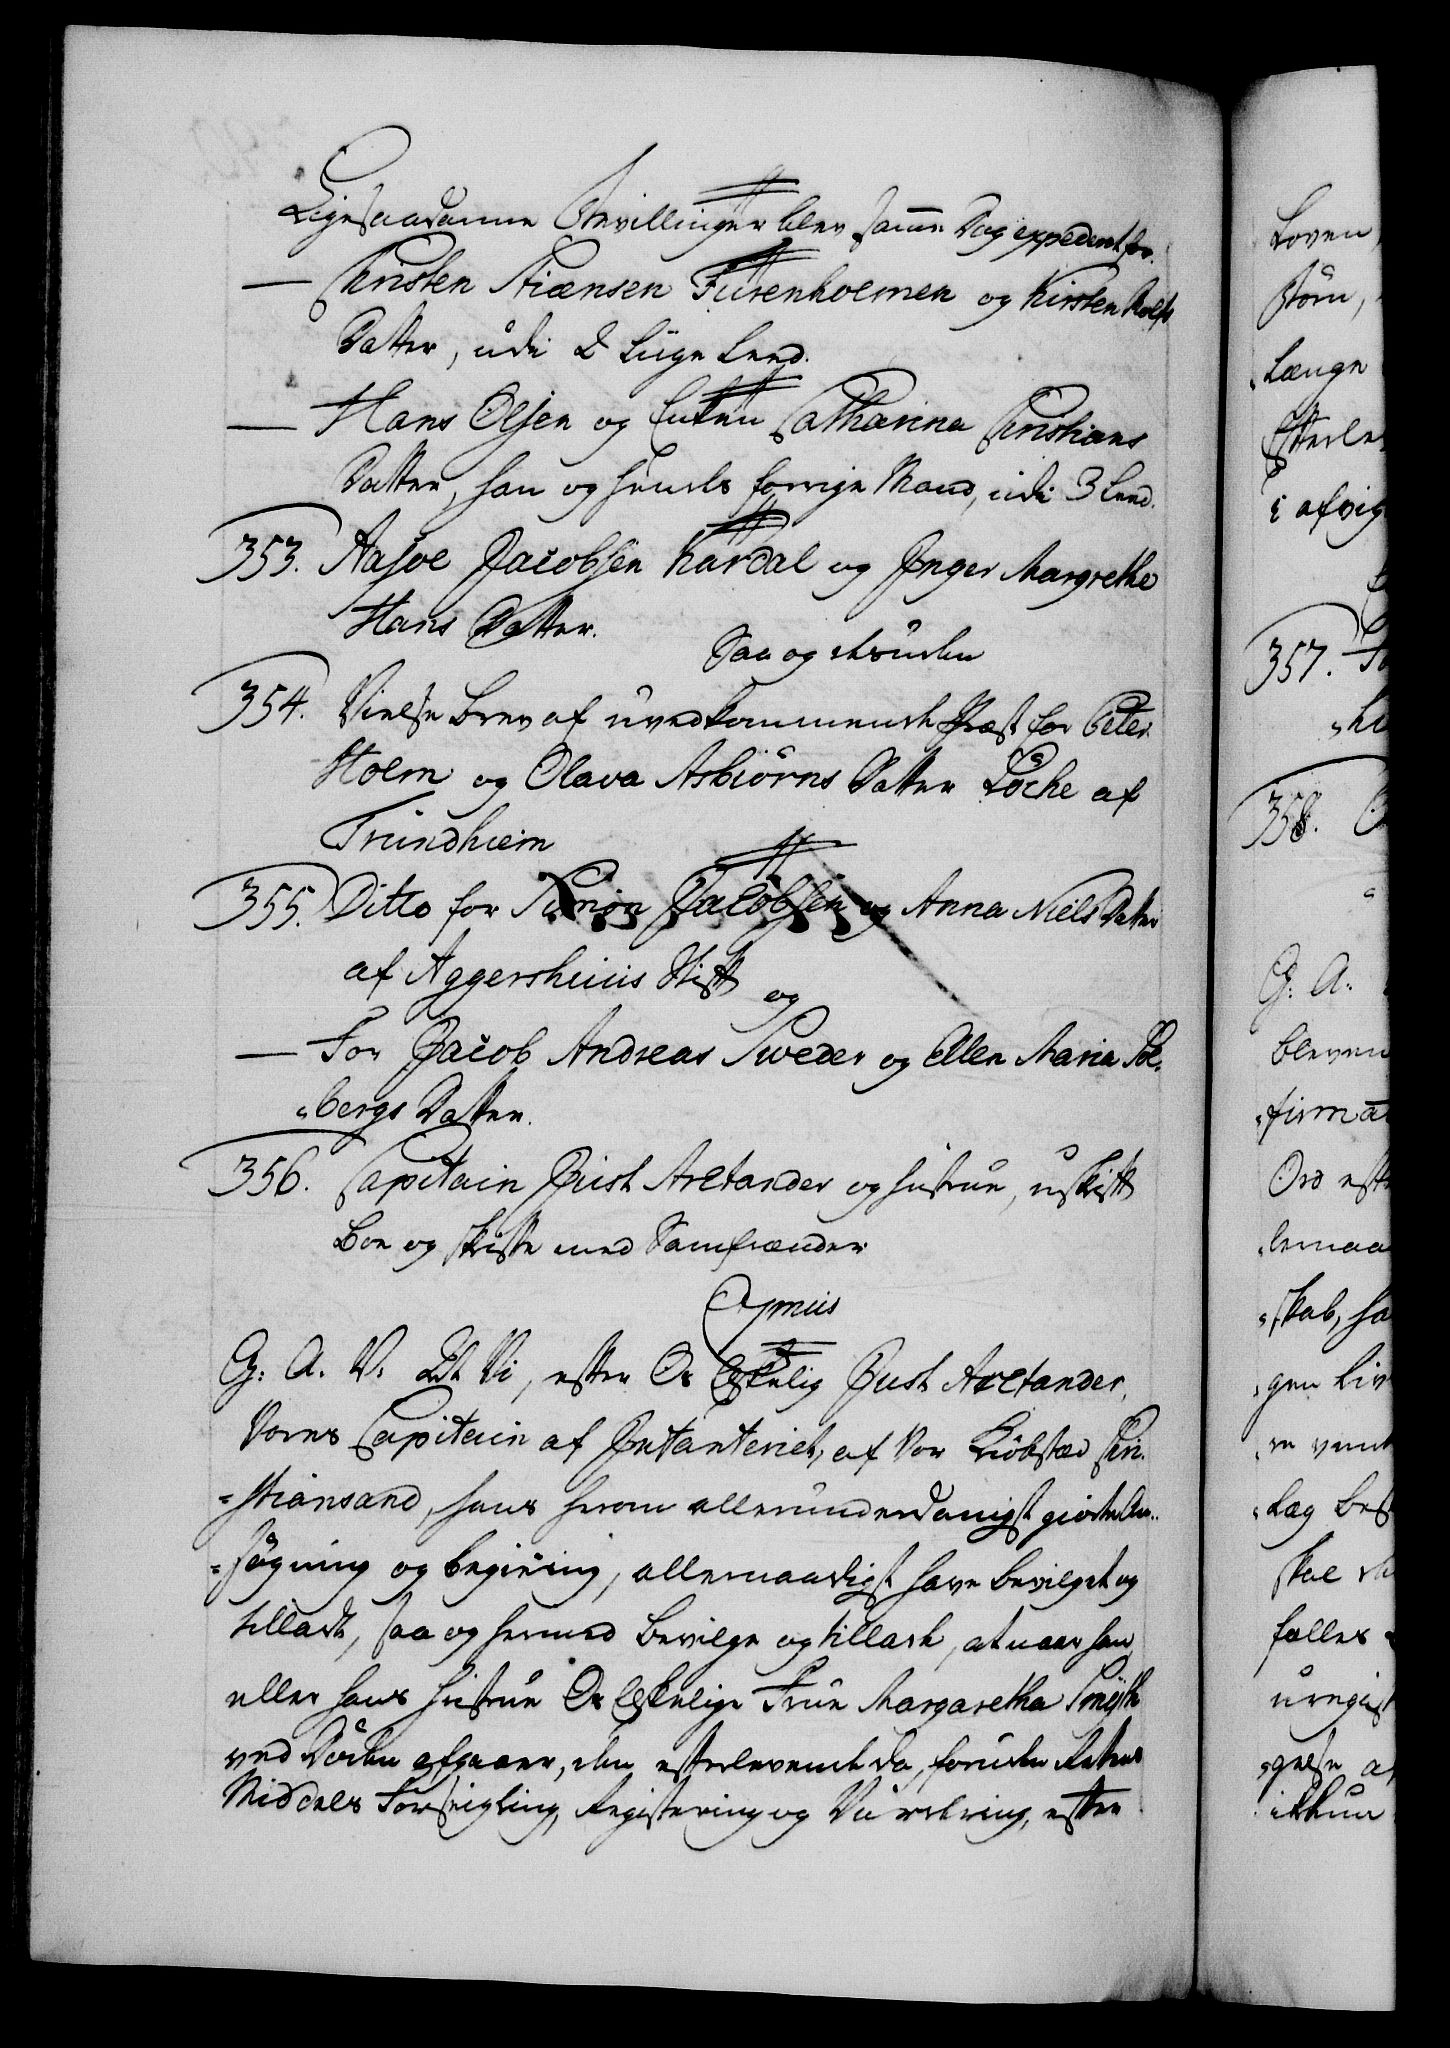 Ligesaadanne Bevillinger blev samme Dag expederet for.
— Christen Stiansen Furenholmen og Kirsten Rolfs
Datter, udi 2 Liige Leed.
— Hans Olsen og Enken Catharina Christians
Datter, han og hendes forrige Mand, udi 3 Leed.
353. Aasoe Jacobsen Kardal og Inger Margrethe
Hans Datter.
Saa og desuden
354. Vielse Brev af uvedkommende Præst for Peter
Holm og Olava Asbiörns Datter Löche af
Trundhiem
355. Ditto for Simon Jacobsen og Anna Niels Datter
af Aggershuus Stift og
— For Jacob Andreas Sweder og Ellen Maria Sol-
"bergs Datter.
356. Capitain Just Aretander og Hustrue, uskift
Boe og skifte med Samfrænder
Cnmus
G: A. V. At Vi, efter Os Elskelig Just Aretander,
Vores Capitain af Infanteriet, af Vor Kiöbstæd Chri-
=stiansand, hans herom allerunderdanigst giorte An-
=søgning og begiering, allernaadigst have bevilget og
tilladt, saa og hermed bevilge og tillade, at naar han
eller hans Hustrue Os Elskelige Frue Margaretha Smÿth
ved Döden afgaaer, den efterlevende da, foruden Rettens
Middels Forseigling, Registering og Vurdering, efter
Loven,
Börn,
Længe
Efterle
i afvig
357.
358.
G: A.
bleven
"firma
Ord eft
"lemaa
"skab, ha
gen Liv
re vend
Læg bes
skal
falles
uregist
"gelse a
ikkun